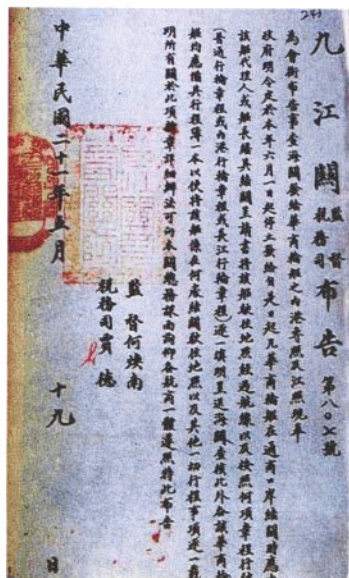 九江關監督稅務司布告 第八〇七號
為會銜布告事查海關發給華商輪船之內港專照及江照現奉
政府明令定於本年六月一日起停止發給自是日起凡華商輪船在通商口岸結關時應
該船代理人或船長繕具結關呈請書將該船駛往地點經過航線以及按照何項章程行
(普通行輪章程或內港行輪章程或長江行輪章程)逐一填明呈送海關查核此外各該華商
船均應備具行程簿一本以便將該船係在何處結關駛往地點以及其他一切行程事項逐一
明所有關於此項 章詳細辦法可向本關總務課面詢仰各航商一體遵照特此布告
監督何 南
稅務司賈德
中華民國二十一年五月 十九 日